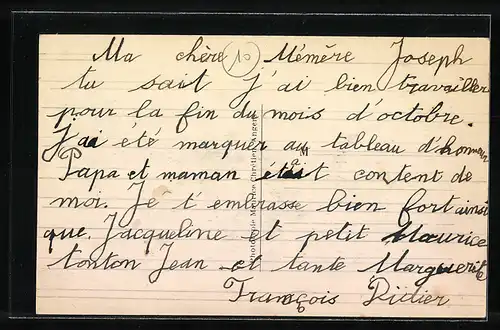 Ma chère Mémère Joseph
10
tu sait j'ai bien travailler
pour la fin du mois d'octobre.
j'ai été marquer au tableau d'honneur
Papa et maman était content de
moi. Je t'embrasse bien fort ainsi
que. Jacqueline et petit Maurice
tonton Jean et tante Marguerite
François Didier
Photographie Maurice Chrétien, Angers